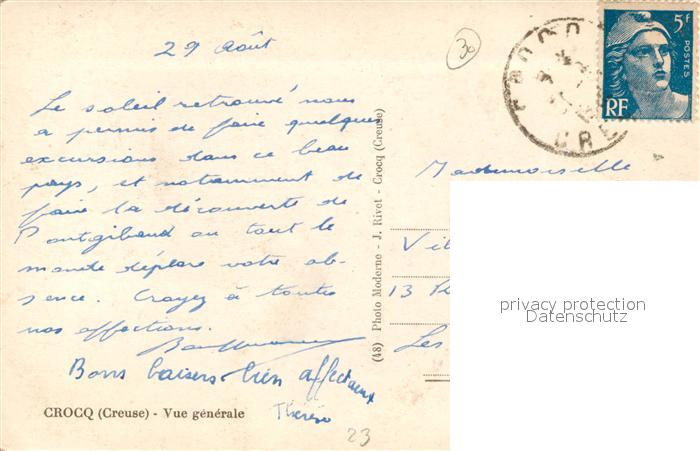 29 Août
30
Le soleil retrouvé nous
a permis de faire quelques
excursions dans ce beau
pays, et notamment de
faire la découverte de
Pontgibaud où tout le
monde déplore votre ab-
sence. Croyez à toutes
nos affections.
Bons baisers bien affectueux
Thérèse
CROCQ (Creuse) - Vue générale
23
(48) Photo Moderne - J. Rivet - Crocq (Creuse)
CROCQ
CRE
5F
POSTES
RF
Mademoiselle
Vil
13
Les
privacy protection
Datenschutz